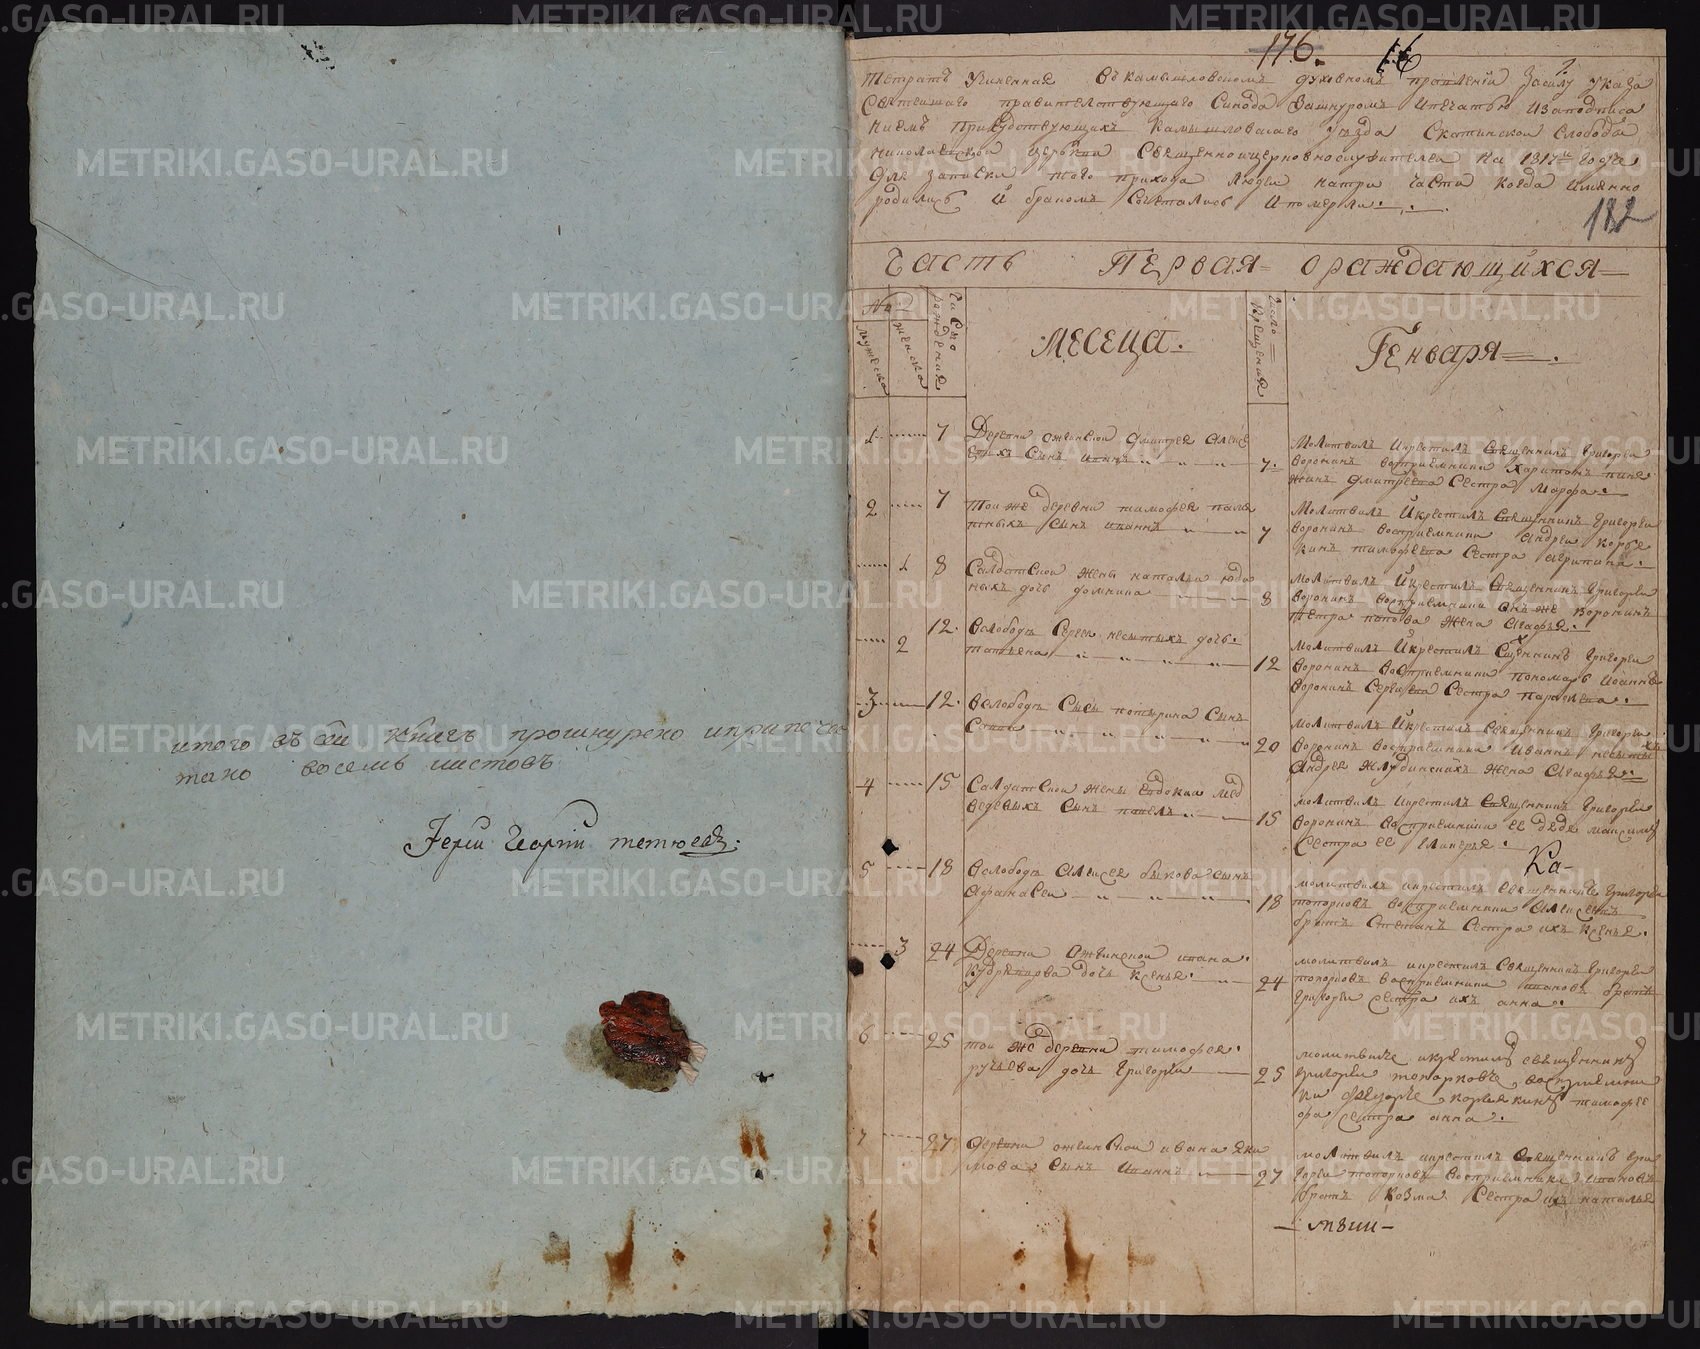 итого въ сей книгѣ прошнурено и припеча
тано восемь листовъ
Іерей Георгій тетюевъ.
176. 16
Тетрать Учиненная въ камышловскомъ духовномъ правленіи Засилу указа
Святѣшаго правителствующаго Синода Зашнуромъ Ипечатью Изаподписа
ниемъ Присудствующихъ Камышловскаго уѣзда Скатинской Слободы
николаевской церькви Священноицерковнослужителей на 1817й годъ
Для записки того прихода людей натри части когда имянно
родились И бракомъ Сочетались Ипомерли.
182
Часть Первая ораждающихся
№
мужеска
женска
Число рождения
Месеца.
Число Крещения
Генваря.
1 7 Деревни ожгинской дмитрея Алексѣ
евыхъ Сынъ иванъ
7. Молитвилъ Икрестилъ Священникъ Григорей
Воронинъ восприемники Харитонъ
дмитрева Сестра Марфа.
2 7 Тои же деревни тимофея
Сынъ иванъ
7 Молитвилъ Икрестилъ Священникъ Григорей
Воронинъ восприемники Андрей Коре
кинъ тимофѣева Сестра
1 8 Салдатской жены наталья юди
ныхъ дочь домника
8 Молитвилъ Икрестилъ Священникъ Григорей
Воронинъ восприемники онъ же Воронинъ
Петра попова жена Агафья.
2 12. Вслободѣ Сергея несытыхъ дочь
татьена
12 Молитвилъ Икрестилъ Священникъ Григорей
Воронинъ восприемники пономарь Иоаннъ
Воронинъ Сергиева Сестра
3 12. Вслободѣ Сысы потырина Сынъ
20 Молитвилъ Икрестилъ Священникъ Григорей
Воронинъ восприемники Иванъ несыты
Андрея жена Агафья.
4 15 Салдатской жены Евдокиа Мед
ведевыхъ Сынъ павелъ
15 молитвилъ икрестилъ Священникъ Григорей
Воронинъ восприемники ее дядя максимъ
Сестра ее Гликерья.
Ка-
5 18 Вслободѣ Алексея быкова сынъ
Афанасей
18 молитвилъ икрестилъ священникъ Григорей
топорковъ восприемники Алексеевъ
братъ Степанъ Сестра ихъ Ксенья.
3 24 Деревни Ожгинской ивана
Кудрявцова дочь Ксенья.
24 молитвилъ икрестилъ Священникъ Григорей
топорковъ восприемники ивановъ братъ
Григорей сестра ихъ анна.
6 25 той же деревни тимофея
ручьева дочь Григорей
25 молитвилъ икрестилъ священникъ
Григорей топорковъ восприемни
ки федоръ корякинъ тимофѣе
ва сестра анна.
7 27 деревни ожгинской ивана яки
мова Сынъ Иванъ
27 молитвилъ икрестилъ Священникъ Гри
горей топорковъ восприемники ивановъ
братъ Козма Сестра ихъ наталья
METRIKI.GASO-URAL.RU